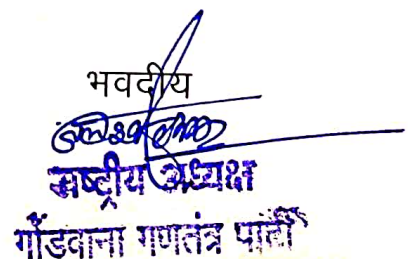 भवदीय
राष्ट्रीय अध्यक्ष
गोंडवाना गणतंत्र पार्टी